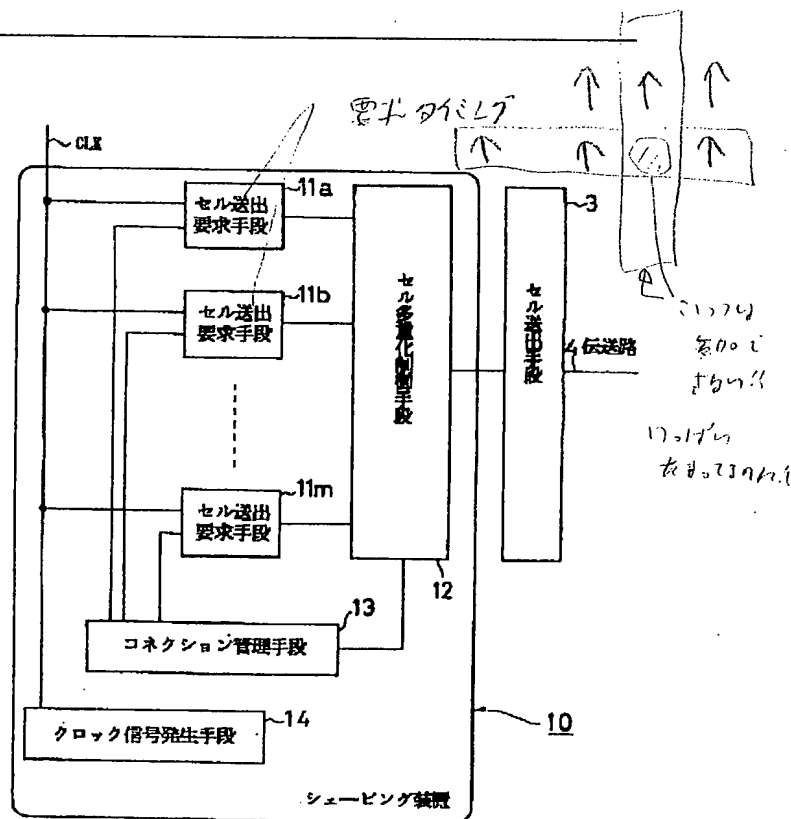 要求タイミング
CLK
11a
セル送出
要求手段
11b
セル送出
要求手段
11m
セル送出
要求手段
セル多重化制御手段
12
3
セル送出手段
4 伝送路
13
コネクション管理手段
14
クロック信号発生手段
10
シェーピング装置